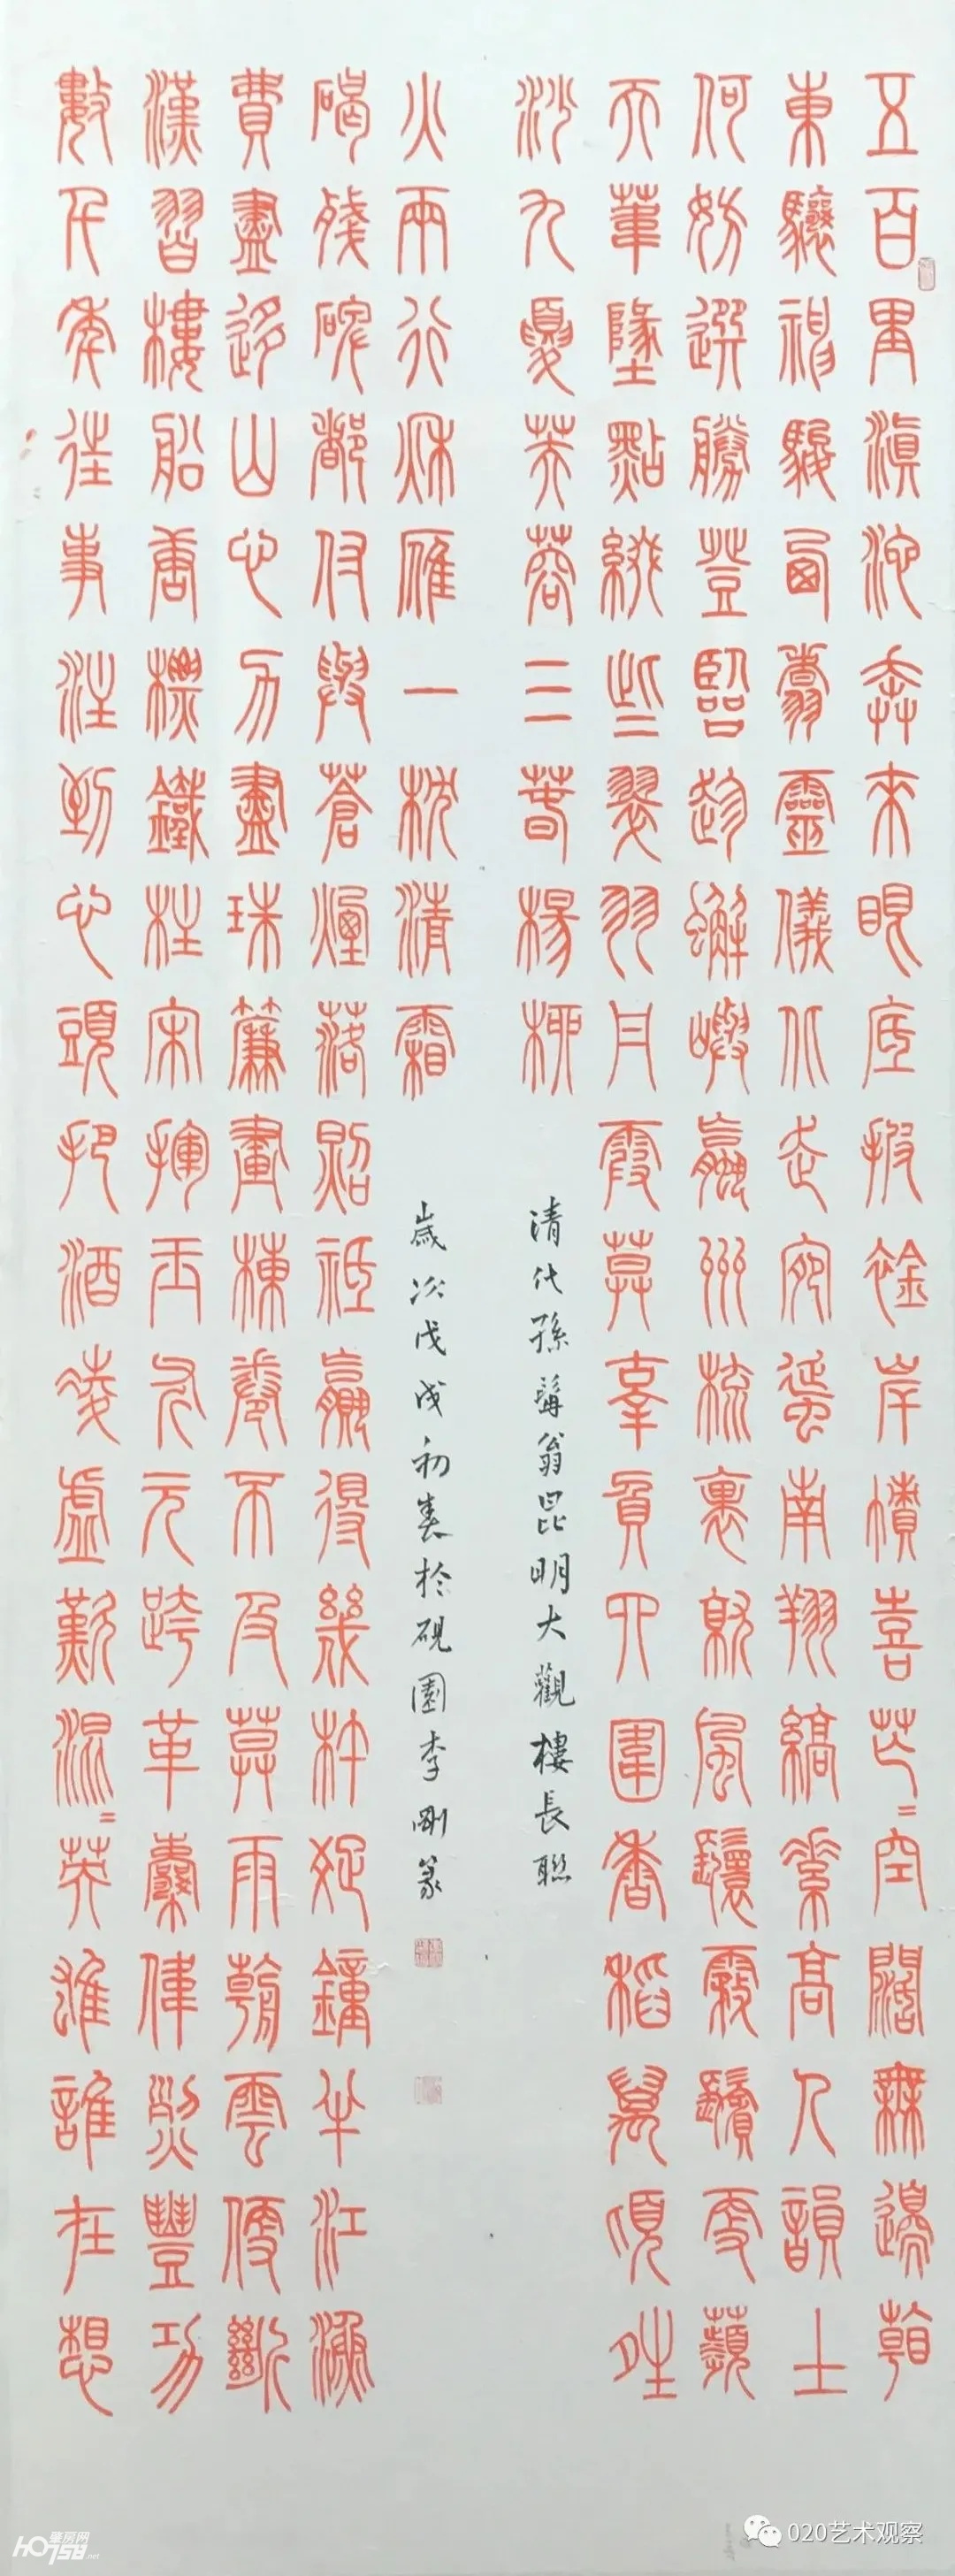 五百里滇池奔來眼底披襟岸幘喜茫〻空闊無邊看
東驤神駿西翥靈儀北走宛蜒南翔縞素高人韻士
何妨選勝登臨趁蟹嶼蠃州梳裹就風鬟霧鬢更蘋
天葦地點綴些翠羽丹霞莫辜負四圍香稻萬頃晴
沙九夏芙蓉三春楊柳
清代孫髯翁昆明大觀樓長聯
數千年往事注到心頭把酒凌虛歎滾〻英雄誰在想
漢習樓船唐標鐵柱宋揮玉斧元跨革囊偉烈豐功
費盡移山心力盡珠簾畫棟卷不及暮雨朝雲便斷
碣殘碑都付與蒼煙落照祗贏得幾杵疏鐘半江漁
火兩行秋雁一枕清霜
歲次戊戌初春於硯園李剛篆
020艺术观察
肇房网
HO758.net